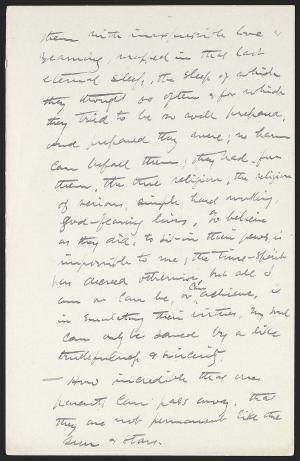 them with inexpressible love &
yearning, wrapped in that last
eternal sleep, the sleep of which
they thought so often & for which
they tried to be so well prepared.
And prepared they were; no harm
can befall them; they had, for
them, the true religion, the religion
of serious, simple hard working,
God-fearing lives. To believe
as they did, to sit in their pews, is
impossible to me; the time-spirit
has decreed otherwise; but all I
am or can be, or can achieve, is
in emulating their virtues; my soul
can only be saved by a like
truthfulness & sincerity.
— How incredible that one's
parents can pass away, that
they are not permanent like the
sun & stars.